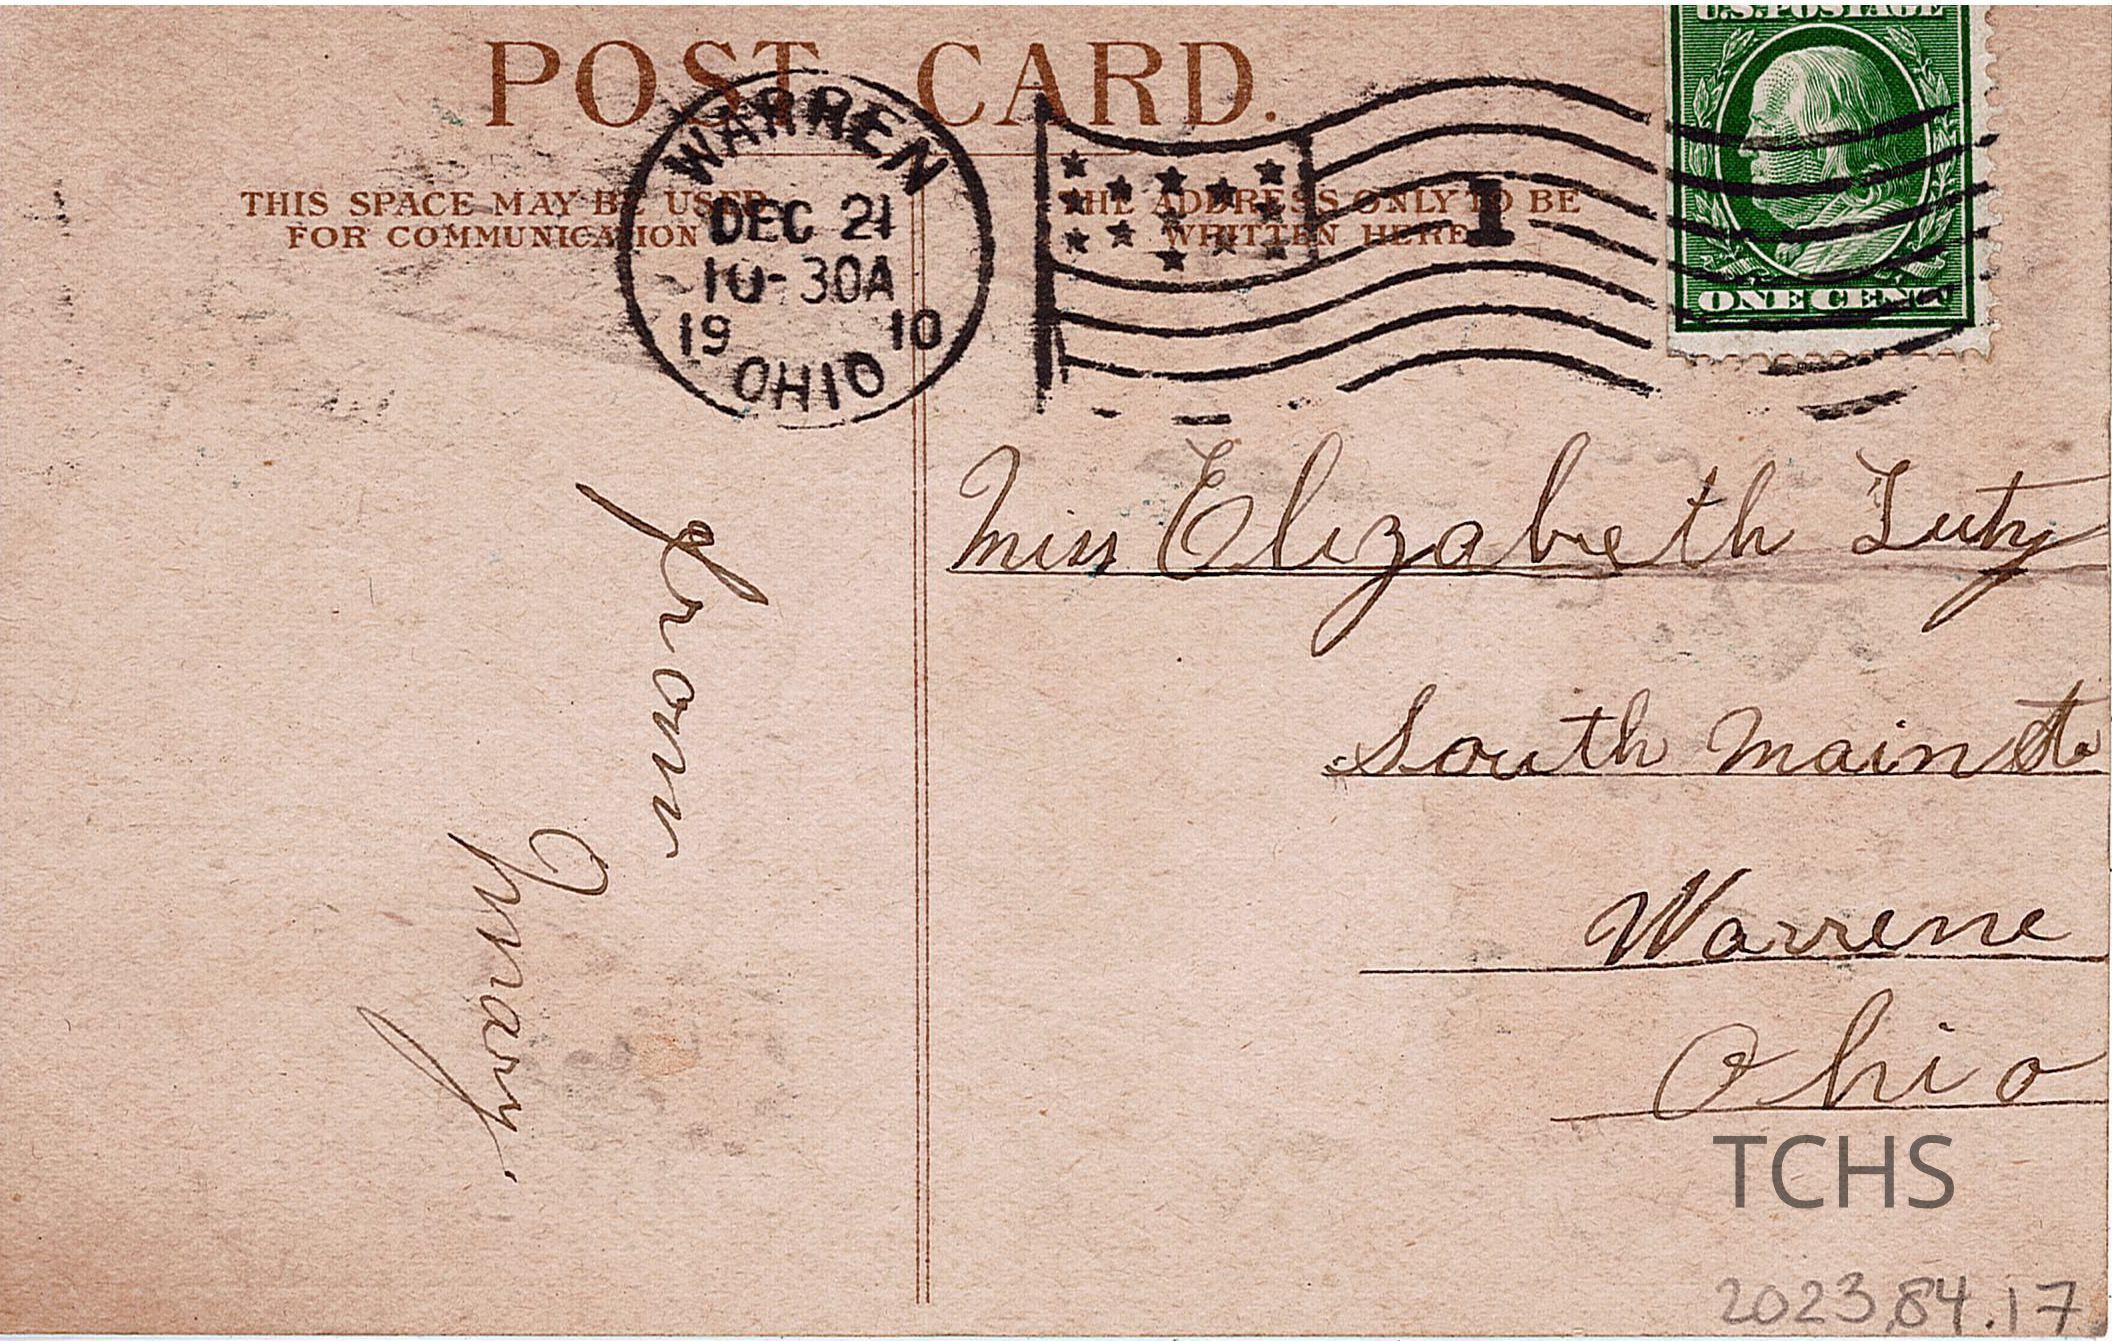 U.S. POSTAGE
POST CARD.
WARREN
DEC 21
10-30A
19 10
OHIO
1
ONE CENT
THIS SPACE MAY BE USED
FOR COMMUNICATION
THE ADDRESS ONLY TO BE
WRITTEN HERE
From
Mary
Miss Elizabeth Luty
South Main St.
Warrene
Ohio
TCHS
2023.84.17